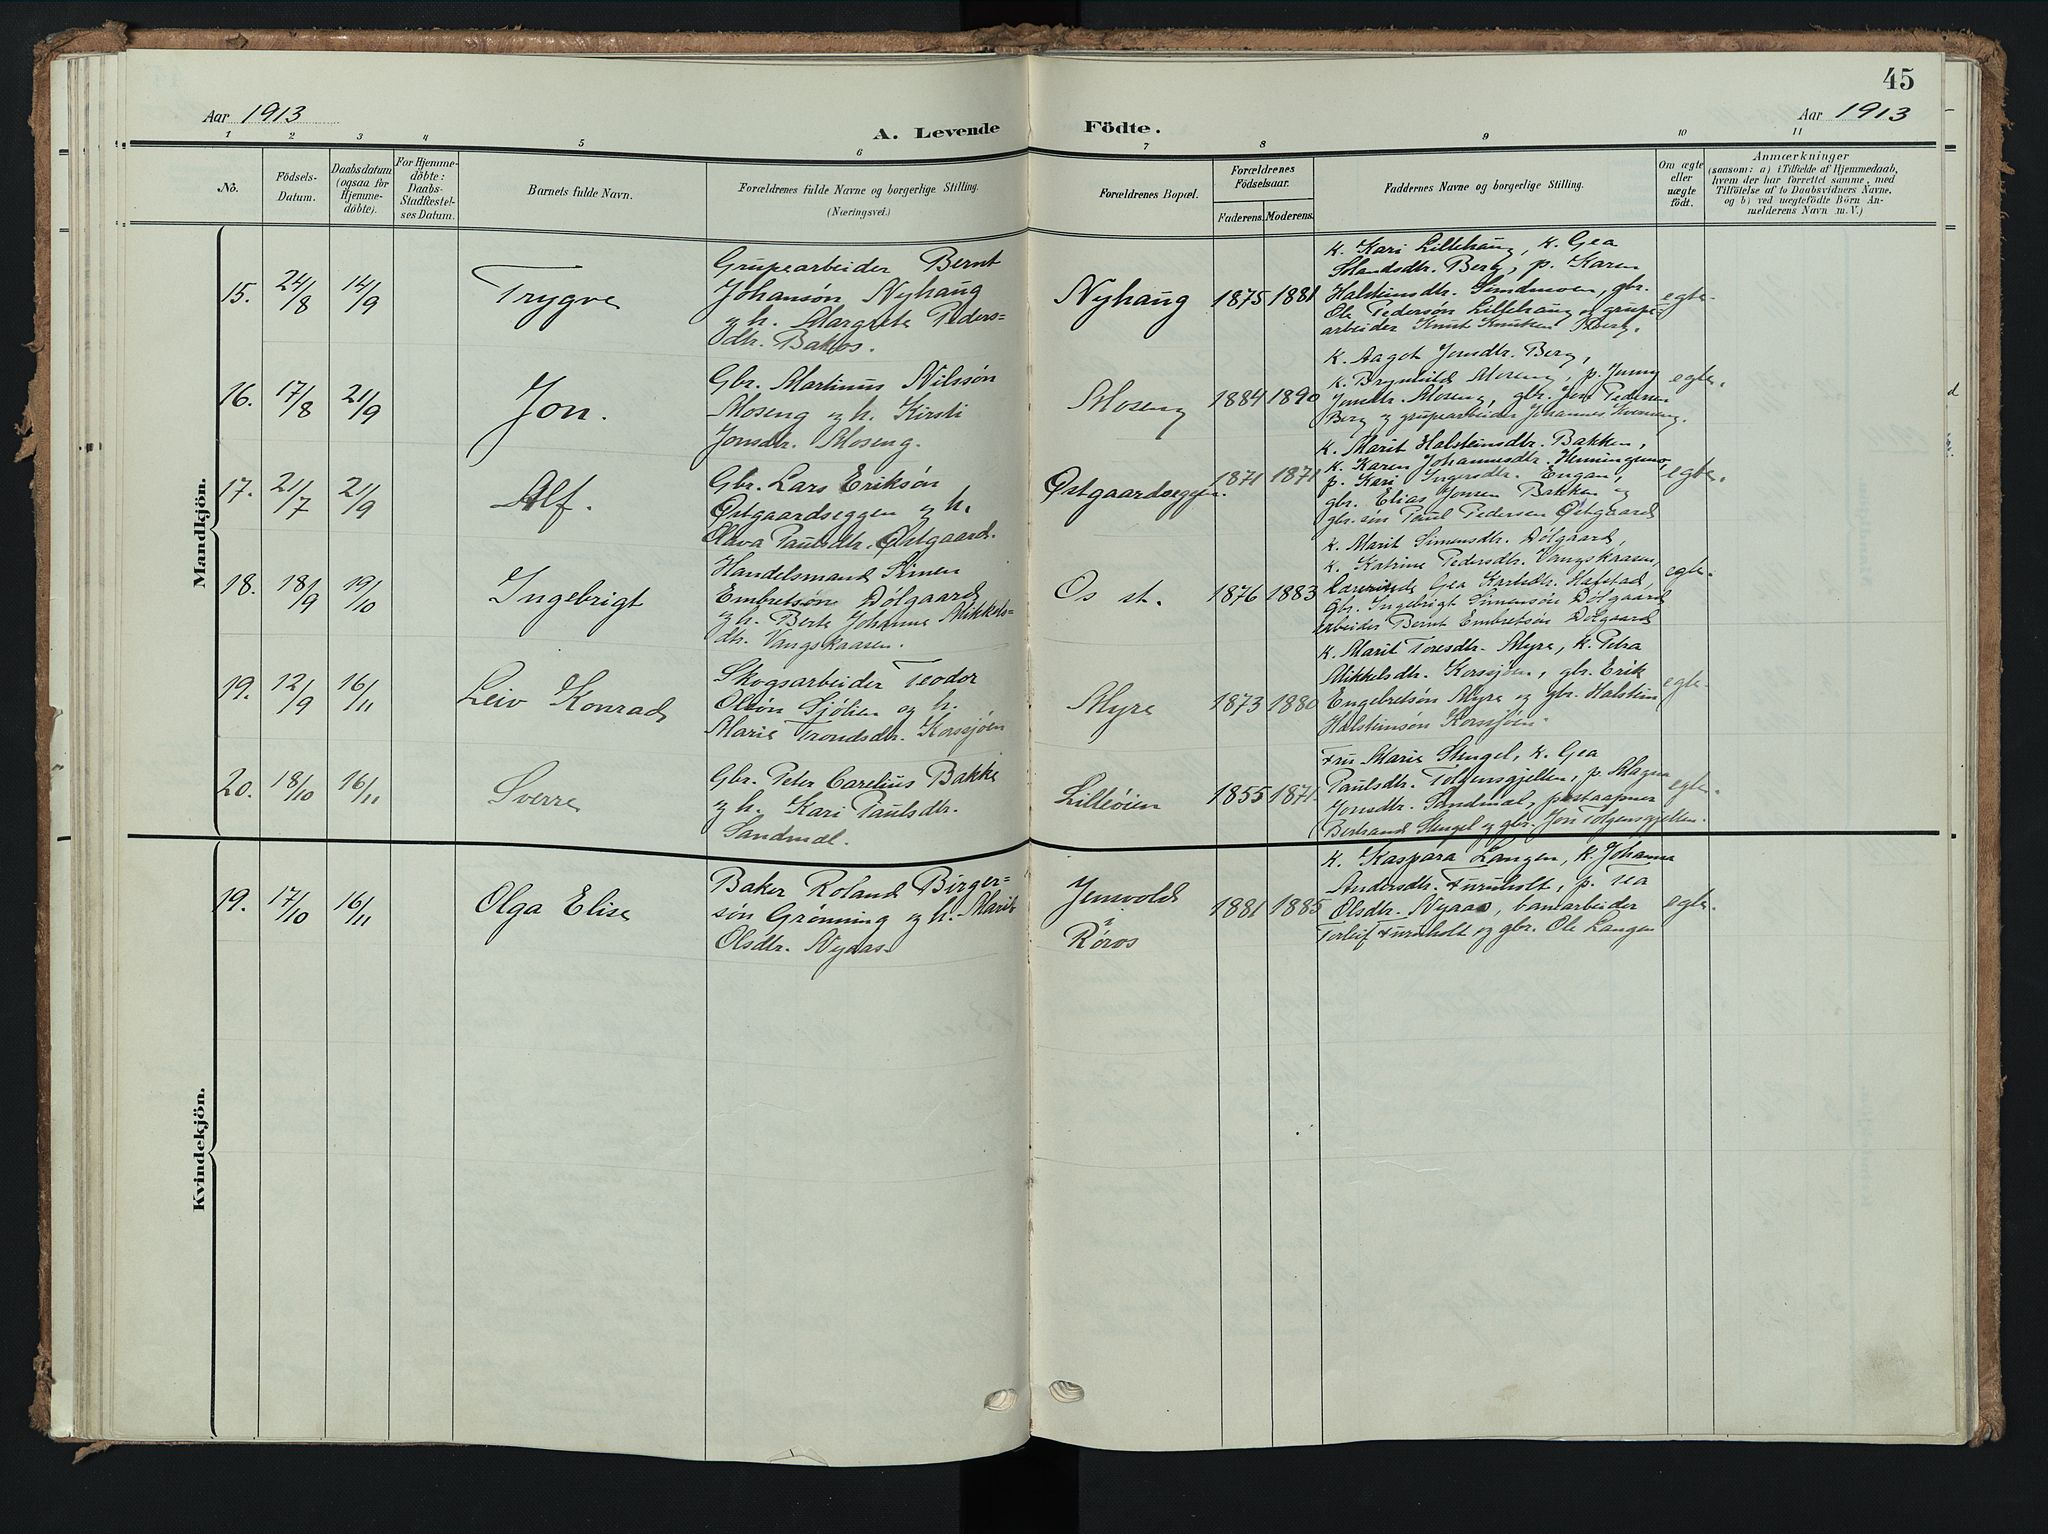 45
Aar 1913
A. Levende Födte.
Aar 1913
1 2 3 4 5 6 7 8 9 10 11
No.
Födsels-
Datum.
Daabsdatum
(ogsaa for
Hjemme-
döbte).
For Hjemme-
döbte:
Daabs-
Stadfæstel-
ses Datum.
Barnets fulde Navn.
Forældrenes fulde Navne og borgerlige Stilling.
(Næringsvei.)
Forældrenes Bopæl.
Forældrenes
Födselsaar.
Faderens. Moderens.
Faddernes Navne og borgerlige Stilling.
Om ægte
eller
uægte
født.
Anmærkninger
(saasom: a) i Tilfælde af Hjemmedaab,
hvem der har forrettet samme, med
Tilföielse af to Daabsvidners Navne,
og b) ved uægtefödte Börn An-
melderens Navn m. V.)
Mandkjön.
15. 24/8 14/9 Trygve
Grupearbeider Bernt
Johansøn Nyhaug
og h. Margrete Peders-
dtr. Bakos.
Nyhaug 1875 1881
K. Kari Lillehaug, K. Gea
Berg, p. Karen
Halsteinsdtr. Sundmoen, gbr.
Ole Pedersøn Lillehaug og grupe-
arbeider Knut Knutsen Berg.
egte.
16. 17/8 21/9 Jon.
Gbr. Martinus Nilssøn
Moseng og h. Kirsti
Jonsdtr. Moseng.
Moseng 1884 1890
K. Aaget Jonsdtr. Berg,
K. Brynhild Moseng, p. Jenny
Jonsdtr. Moseng, gbr. Jon Pedersen
Berg og grupearbeider Johannes Kverneng.
egte.
17. 21/7 21/9 Alf.
Gbr. Lars Eriksøn
Østgaardseggen og h.
Olava Paulsdtr. Østgaard.
Østgaardseggen. 1871 1871
K. Marit Halsteinsdtr. Bakken,
K. Karen Johannesdtr. Hemmingsmo,
p. Kari Ingersdtr. Engan,
gbr. Elias Jonsen Bakken og
gbr. søn Paul Pedersen Østgaard
egte.
18. 18/9 19/10 Ingebrigt
Handelsmand Simen
Embretsøn Dølgaard
og h. Berte Johanne Mikkels-
dtr. Vangskaasen.
Os st. 1876 1883
K. Marit Simensdtr. Dølgaard,
K. Katrine Pedersdtr. Vangskaasen,
Lærerinde Gea Karlsdtr. Hafstad,
Gbr. Ingebrigt Simensøn Dølgaard
arbeider Bernt Embretsøn Dølgaard
egte.
19. 12/9 16/11 Leiv Konrad
Skogsarbeider Teodor
Olsøn Sjølien og h.
Marie Trondsdtr. Korssjøen
Myre 1873 1880
K. Marit Toresdtr. Myre, K. Petra
Mikkelsdtr. Korssjøen, gbr. Erik
Engebretsøn Myre og gbr. Halstein
Halsteinsøn Korssjøen.
egte.
20. 18/10 16/11 Sverre
Gbr. Peter Carelius Bakke
og h. Kari Paulsdtr.
Sandmæl.
Lilleøien 1855 1871.
Fru Marie Stengel, K. Gea
Paulsdtr. Tolgensgjelten, p. Magna
Jonsdtr. Sandmæl, postaapner
Bertrand Stengel og gbr. Jon Tolgensgjelten.
egte.
Kvindekjön.
19. 17/10 16/11 Olga Elise
Baker Roland Birger-
søn Grønning og h. Marit
Olsdtr. Nyaas.
Jensvold
i
Røros
1881 1885
K. Kaspara Langen, K. Johanna
Andersdtr. Furuholt, p. Tea
Olsdtr. Nyaas, banearbeider
Torleif Furuholt og gbr. Ole Langen
egte.